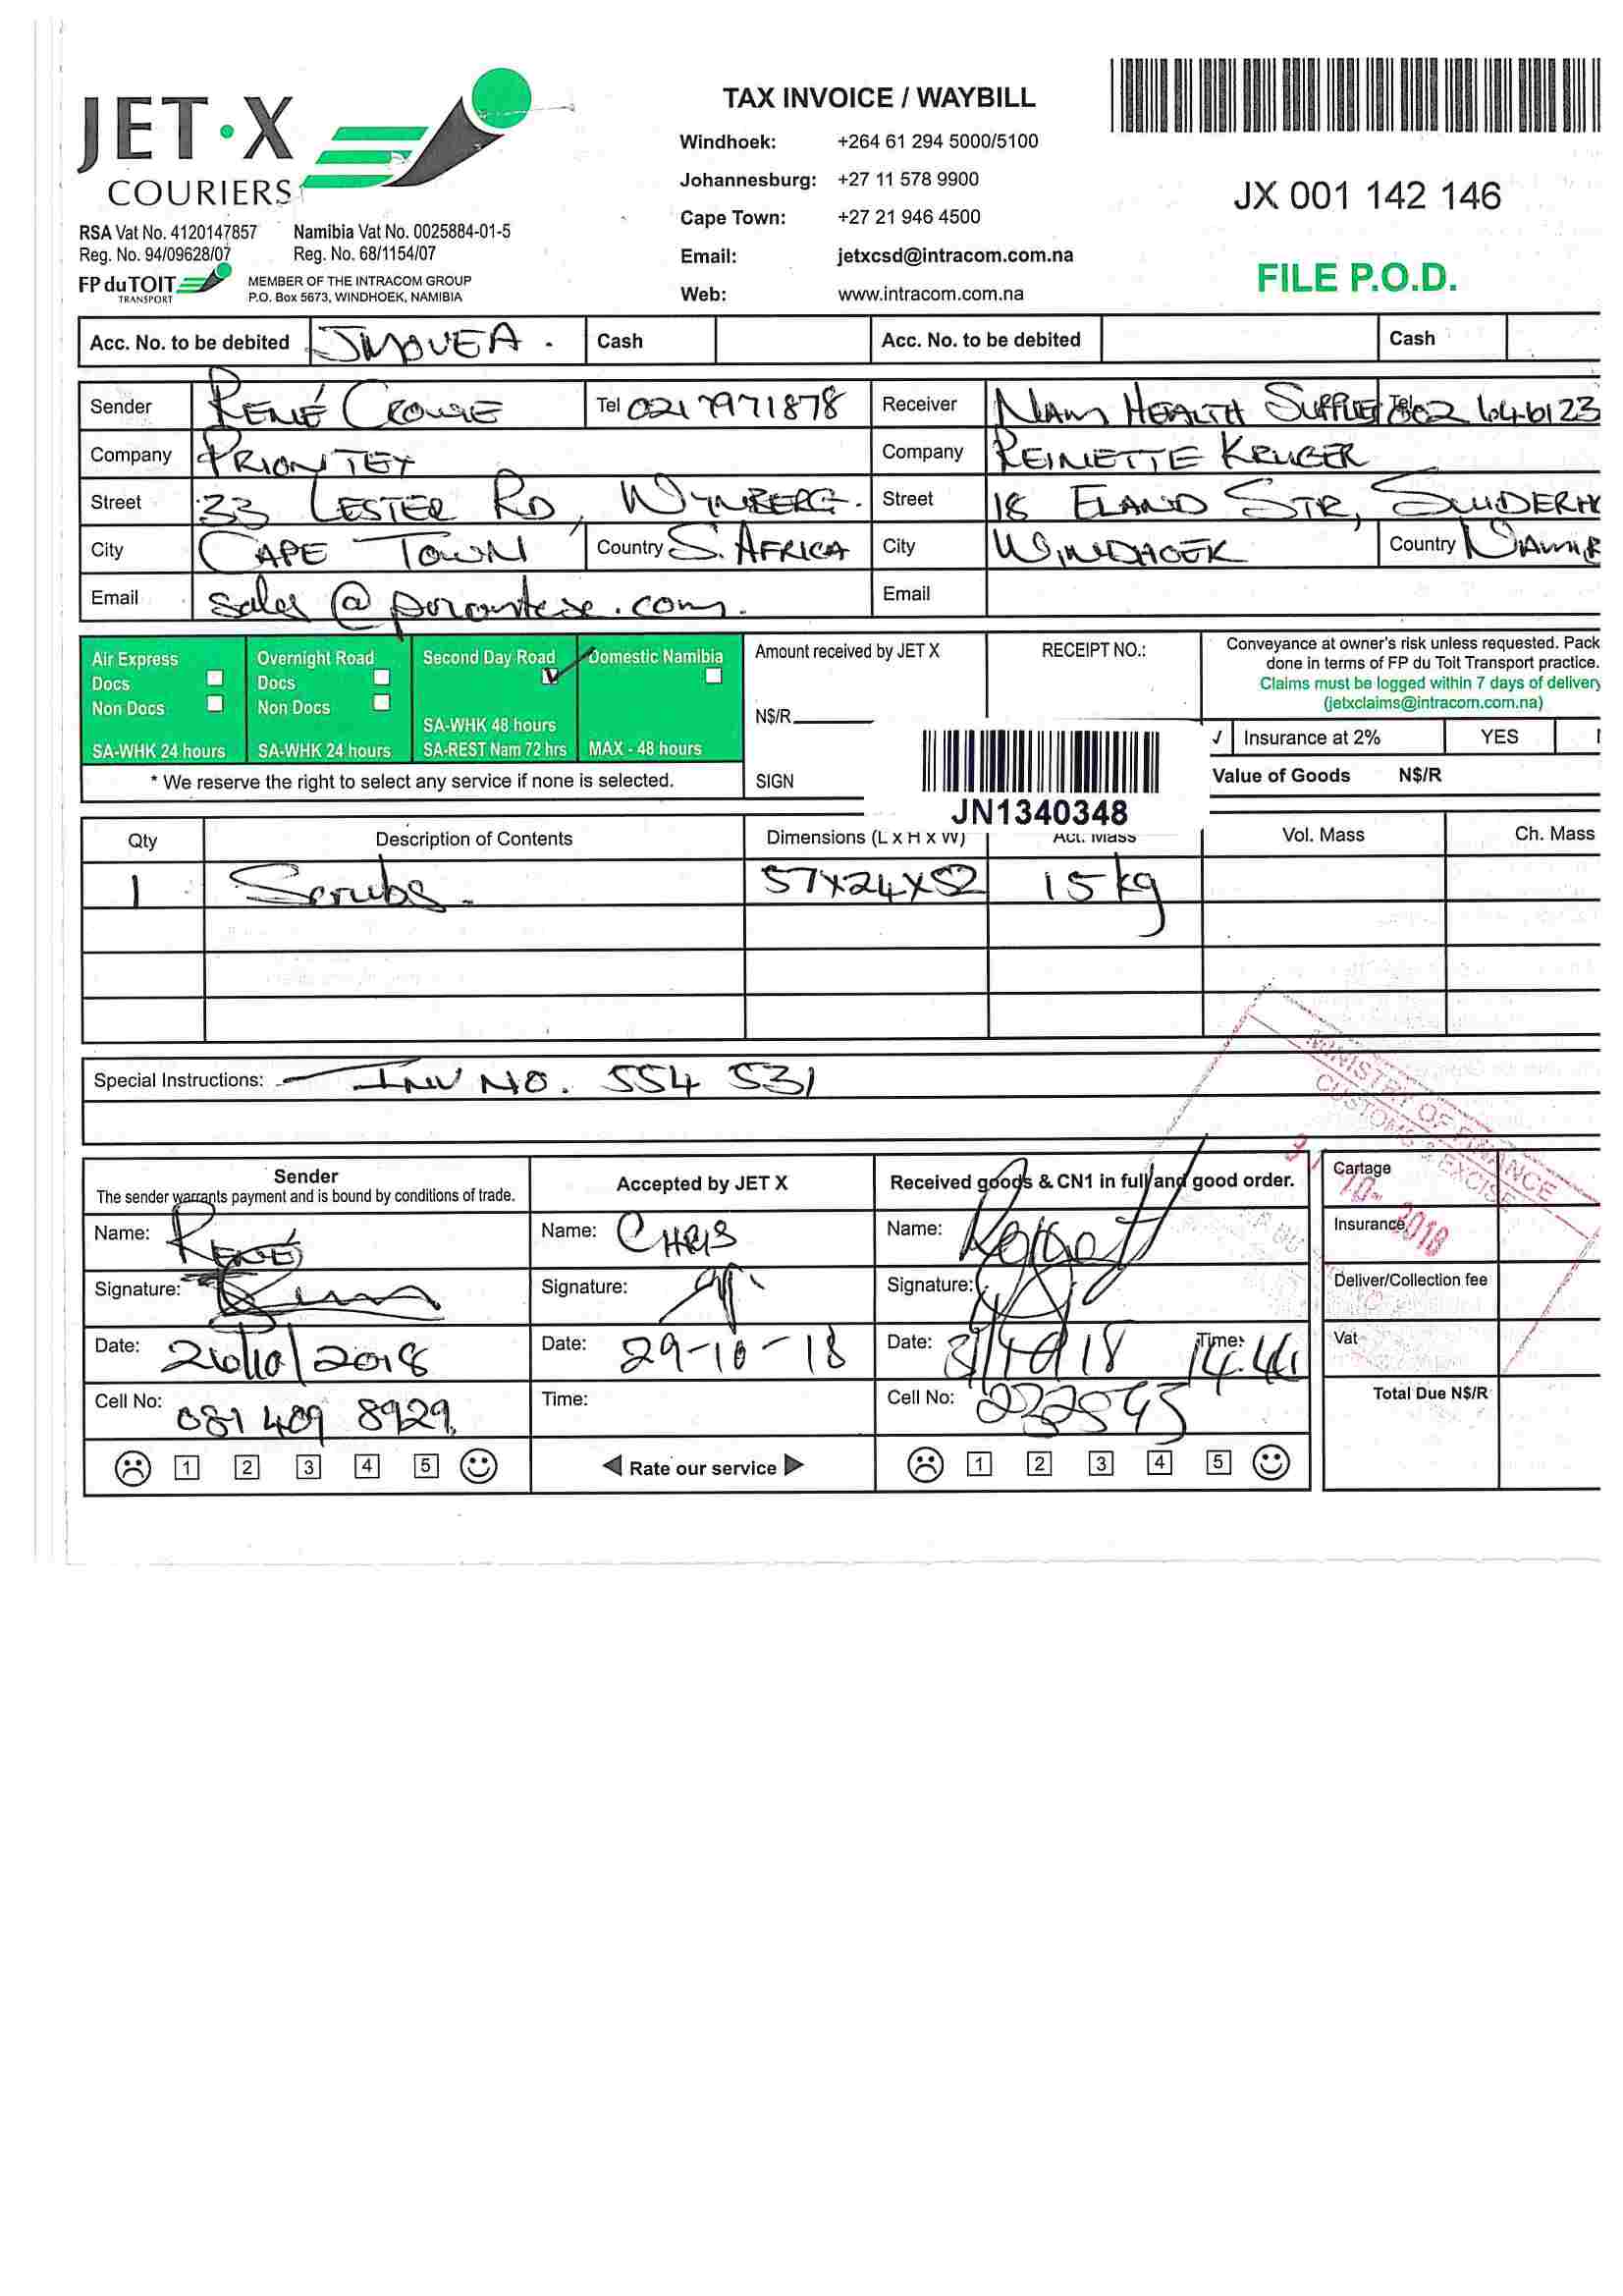 JET·X
COURIERS
RSA Vat No. 4120147857 Namibia Vat No. 0025884-01-5
Reg. No. 94/09628/07 Reg. No. 68/1154/07
FP du TOIT
TRANSPORT
MEMBER OF THE INTRACOM GROUP
P.O. Box 5673, WINDHOEK, NAMIBIA
TAX INVOICE / WAYBILL
Windhoek: +264 61 294 5000/5100
Johannesburg: +27 11 578 9900
Cape Town: +27 21 946 4500
Email: jetxcsd@intracom.com.na
Web: www.intracom.com.na
JX 001 142 146
FILE P.O.D.
Acc. No. to be debited Cash Acc. No. to be debited Cash
Sender RENÉ CROUSE Tel 0217971878 Receiver NAM HEALTH Tel 646123
Company PRIONTEX Company REINETTE KRUGER
Street 33 LESTER RD, WYNBERG. Street 18 ELAND STR,
City CAPE TOWN Country S. AFRICA City WINDHOEK Country
Email Email
Air Express
Docs
Non Docs
SA-WHK 24 hours
Overnight Road
Docs
Non Docs
SA-WHK 24 hours
Second Day Road
SA-WHK 48 hours
SA-REST Nam 72 hrs
Domestic Namibia
MAX - 48 hours
* We reserve the right to select any service if none is selected.
Amount received by JET X
N$/R
SIGN
RECEIPT NO.:
JN1340348
Conveyance at owner's risk unless requested. Pack
done in terms of FP du Toit Transport practice.
Claims must be logged within 7 days of delivery
(jetxclaims@intracom.com.na)
√ Insurance at 2% YES
Value of Goods N$/R
Qty Description of Contents Dimensions (L x H x W) Act. Mass Vol. Mass Ch. Mass
1 Scrubs. 57x24x52 15kg
Special Instructions: INV NO. 554 531
MINISTRY OF FINANCE
CUSTOMS & EXCISE
31 -10- 2018
Sender
The sender warrants payment and is bound by conditions of trade.
Name: RENÉ
Signature:
Date: 26/10/2018
Cell No: 081 409 8929
Accepted by JET X
Name: CHRIS
Signature:
Date: 29-10-18
Time:
Received goods & CN1 in full and good order.
Name:
Signature:
Date: Time:
Cell No:
1 2 3 4 5 Rate our service 1 2 3 4 5
Cartage
Insurance
Deliver/Collection fee
Vat
Total Due N$/R